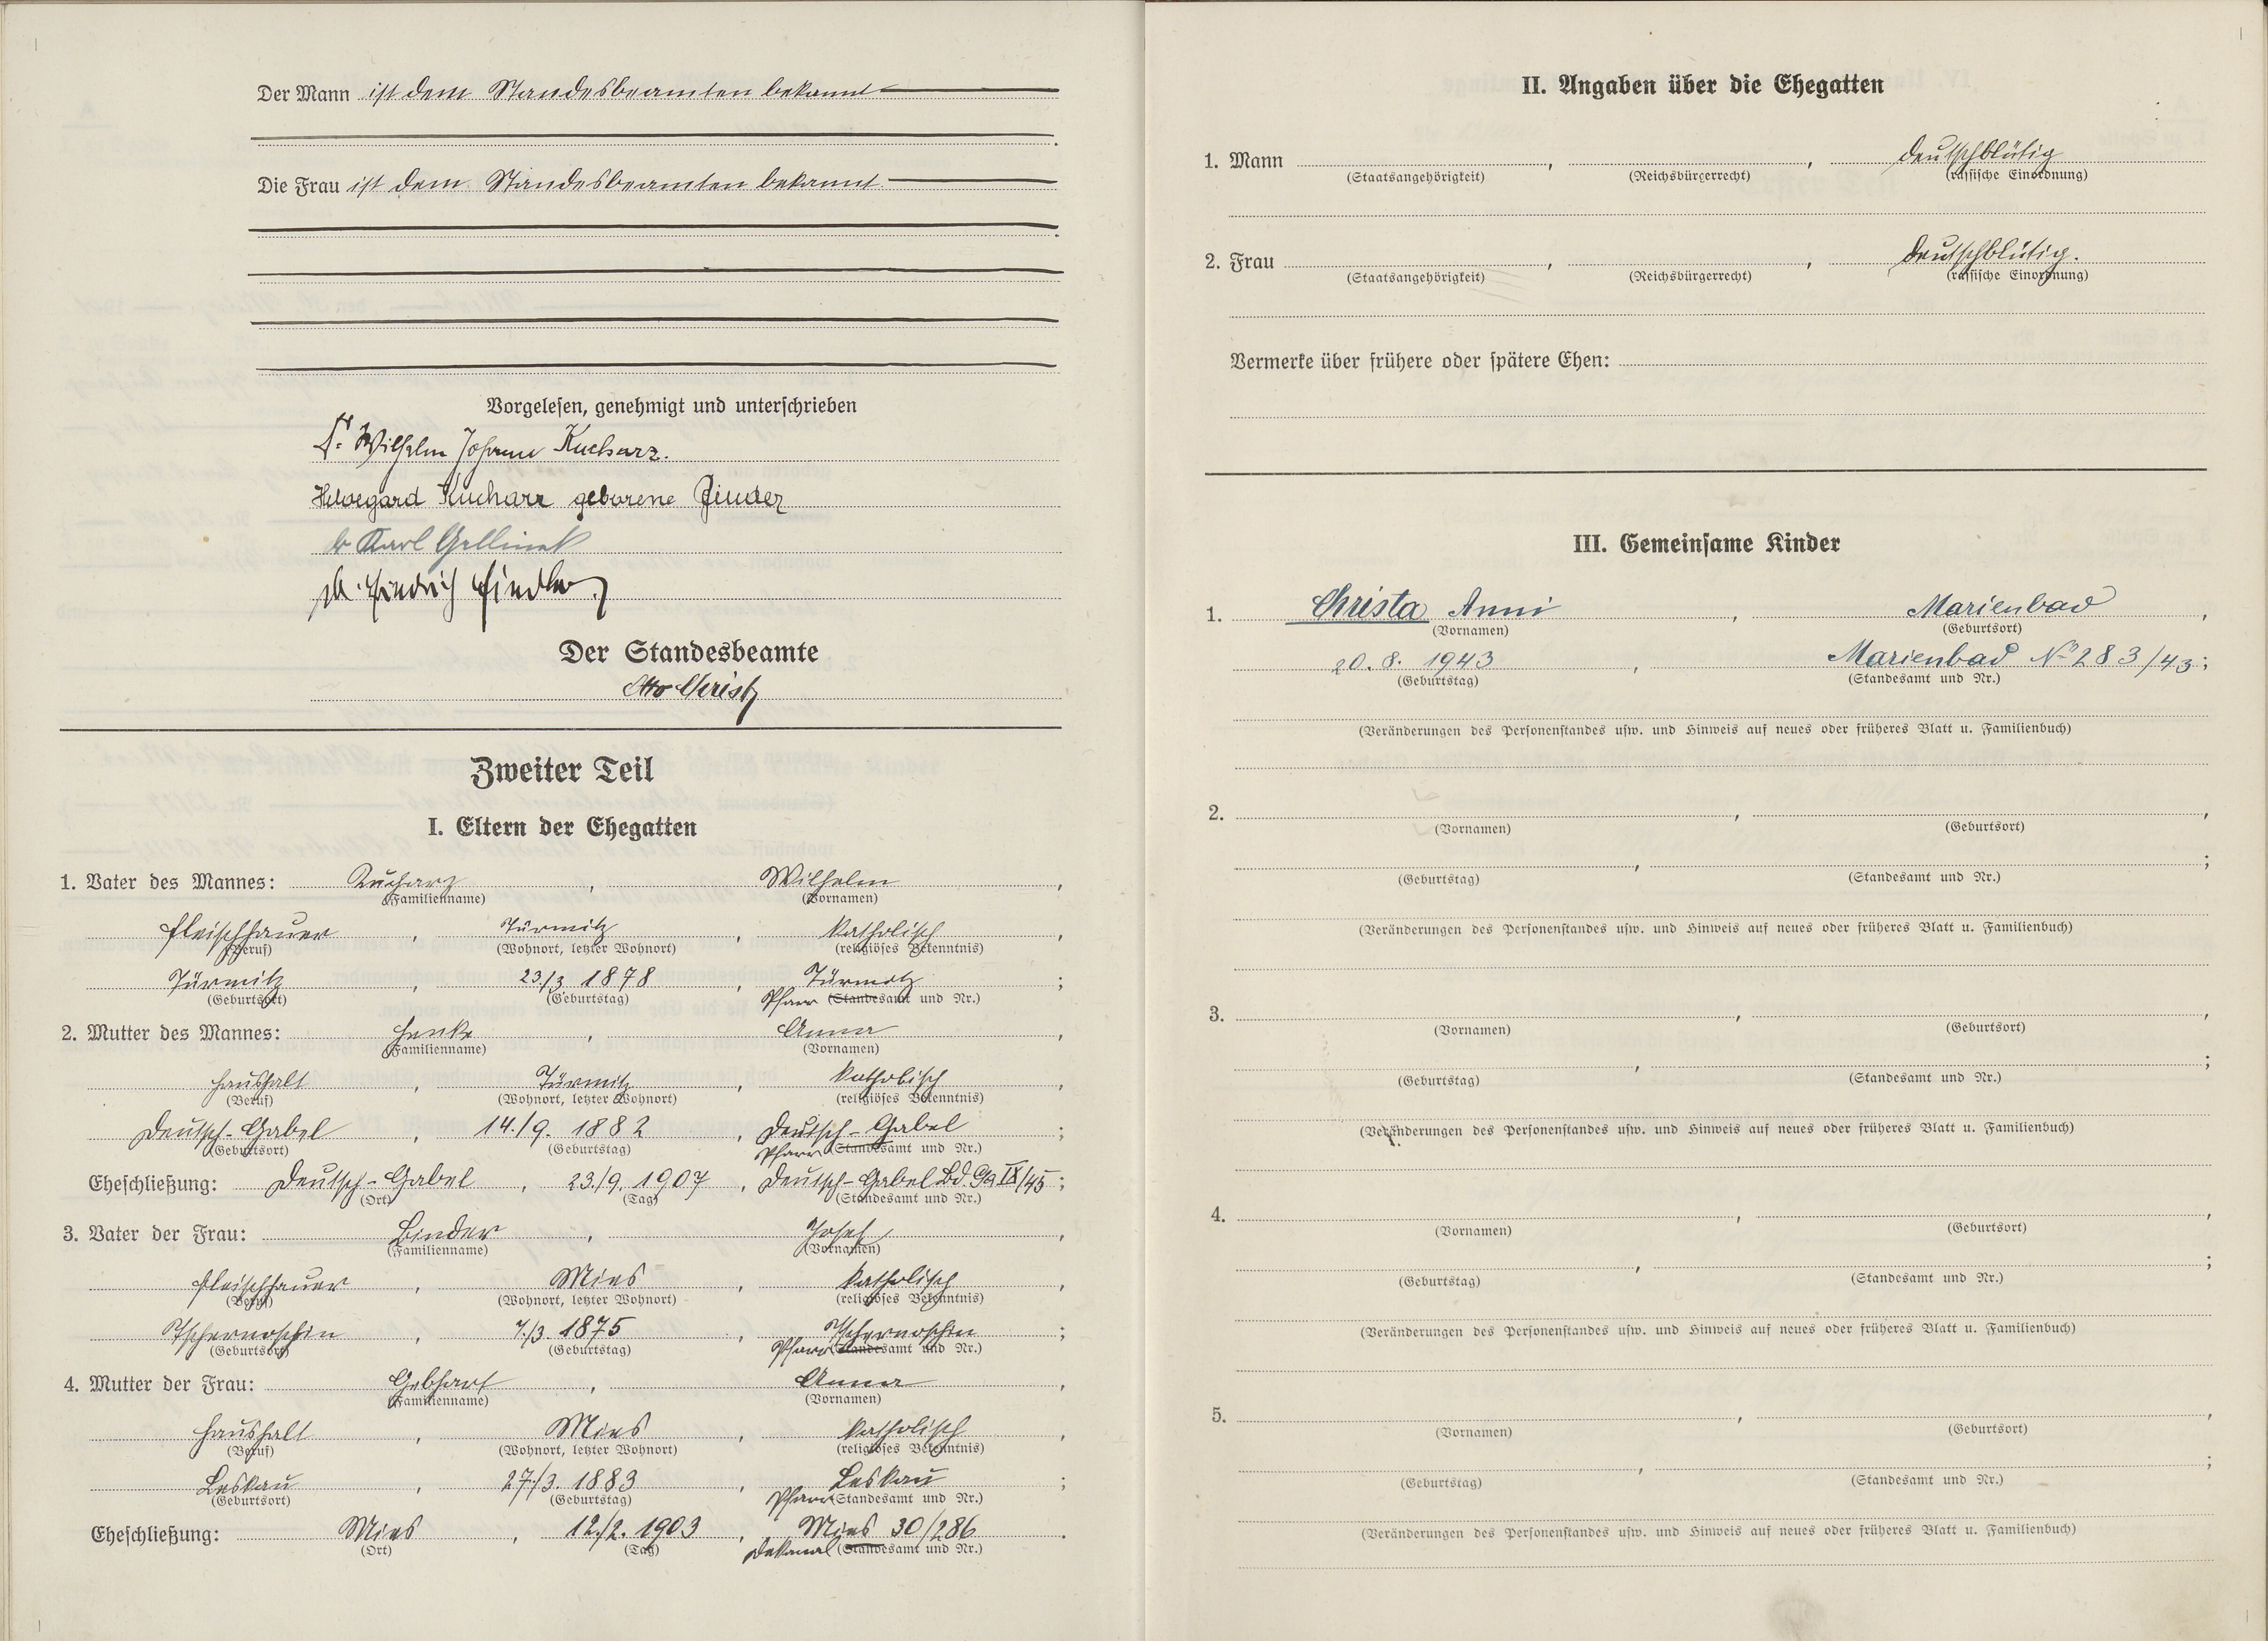 Der Mann ist dem Standesbeamten bekannt
Die Frau ist dem Standesbeamten bekannt.
Vorgelesen, genehmigt und unterschrieben
Dr. Wilhelm Johann Kucharz.
Hildegard Kucharz geborene Binder
Dr Karl Gellinek
Friedrich
Der Standesbeamte
Otto Christ
Zweiter Teil
I. Eltern der Ehegatten
1. Vater des Mannes: Kucharz, Wilhelm,
(Familienname) (Vornamen)
Fleischhauer, Türmitz, katholisch,
(Beruf) (Wohnort, letzter Wohnort) (religiöses Bekenntnis)
Türmitz, 23./3 1878, Türmitz;
(Geburtsort) (Geburtstag) Pfarr (Standesamt und Nr.)
2. Mutter des Mannes: Henke, Anna,
(Familienname) (Vornamen)
Haushalt, Türmitz, katholisch,
(Beruf) (Wohnort, letzter Wohnort) (religiöses Bekenntnis)
Deutsch-Gabel, 14./9. 1882, Deutsch-Gabel;
(Geburtsort) (Geburtstag) Pfarr (Standesamt und Nr.)
Eheschließung: Deutsch-Gabel, 23./9. 1907, Deutsch-Gabel Bd. Ga IX/45;
(Ort) (Tag) (Standesamt und Nr.)
3. Vater der Frau: Binder, Josef,
(Familienname) (Vornamen)
Fleischhauer, Mies, katholisch,
(Beruf) (Wohnort, letzter Wohnort) (religiöses Bekenntnis)
Tschernoschin, 7./3. 1875, Tschernoschin;
(Geburtsort) (Geburtstag) Pfarr (Standesamt und Nr.)
4. Mutter der Frau: Gebhart, Anna,
(Familienname) (Vornamen)
Haushalt, Mies, katholisch,
(Beruf) (Wohnort, letzter Wohnort) (religiöses Bekenntnis)
Leskau, 27./3. 1883, Leskau;
(Geburtsort) (Geburtstag) Pfarr (Standesamt und Nr.)
Eheschließung: Mies, 12./2. 1903, Mies 30/286.
(Ort) (Tag) Dekanal (Standesamt und Nr.)
II. Angaben über die Ehegatten
1. Mann , , deutschblütig
(Staatsangehörigkeit) (Reichsbürgerrecht) (rassische Einordnung)
2. Frau , , deutschblütig.
(Staatsangehörigkeit) (Reichsbürgerrecht) (rassische Einordnung)
Vermerke über frühere oder spätere Ehen:
III. Gemeinsame Kinder
1. Christa Anni, Marienbad,
(Vornamen) (Geburtsort)
20. 8. 1943, Marienbad No 283/43;
(Geburtstag) (Standesamt und Nr.)
(Veränderungen des Personenstandes usw. und Hinweis auf neues oder früheres Blatt u. Familienbuch)
2. , ,
(Vornamen) (Geburtsort)
, ;
(Geburtstag) (Standesamt und Nr.)
(Veränderungen des Personenstandes usw. und Hinweis auf neues oder früheres Blatt u. Familienbuch)
3. , ,
(Vornamen) (Geburtsort)
, ;
(Geburtstag) (Standesamt und Nr.)
(Veränderungen des Personenstandes usw. und Hinweis auf neues oder früheres Blatt u. Familienbuch)
4. , ,
(Vornamen) (Geburtsort)
, ;
(Geburtstag) (Standesamt und Nr.)
(Veränderungen des Personenstandes usw. und Hinweis auf neues oder früheres Blatt u. Familienbuch)
5. , ,
(Vornamen) (Geburtsort)
, ;
(Geburtstag) (Standesamt und Nr.)
(Veränderungen des Personenstandes usw. und Hinweis auf neues oder früheres Blatt u. Familienbuch)